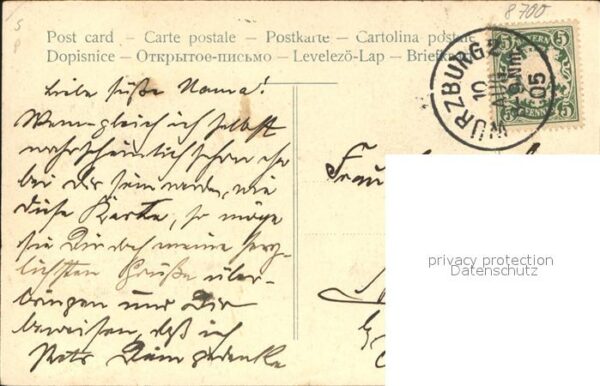 8700
Post card – Carte postale – Postkarte – Cartolina postale
Dopisnice – Открытое-письмо – Levelező-Lap – Briefka
WÜRZBURG 2
10 AUG
Nm.
05
5 5
BAYERN
PFENNIG
5 5
Liebe süße Mama!
Wenngleich ich selbst
wahrscheinlich schon eher
bei Dir sein werde, wie
diese Karte, so möge
sie Dir doch meine herz-
lichsten Grüße über-
bringen und Dir
beweisen, daß ich
stets Dein gedenke
Frau
privacy protection
Datenschutz